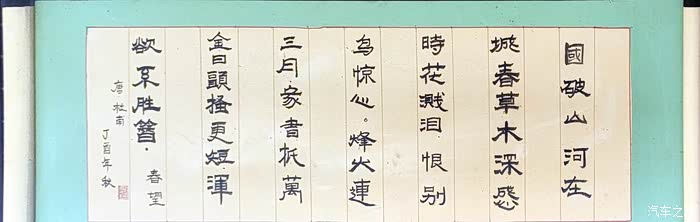 國破山河在
城春草木深感
時花溅泪.恨别
鸟惊心。烽火連
三月.家書抵萬
金日頭搔更短.渾
欲系胜簪.
春望
唐.杜甫
丁酉年秋
汽车之